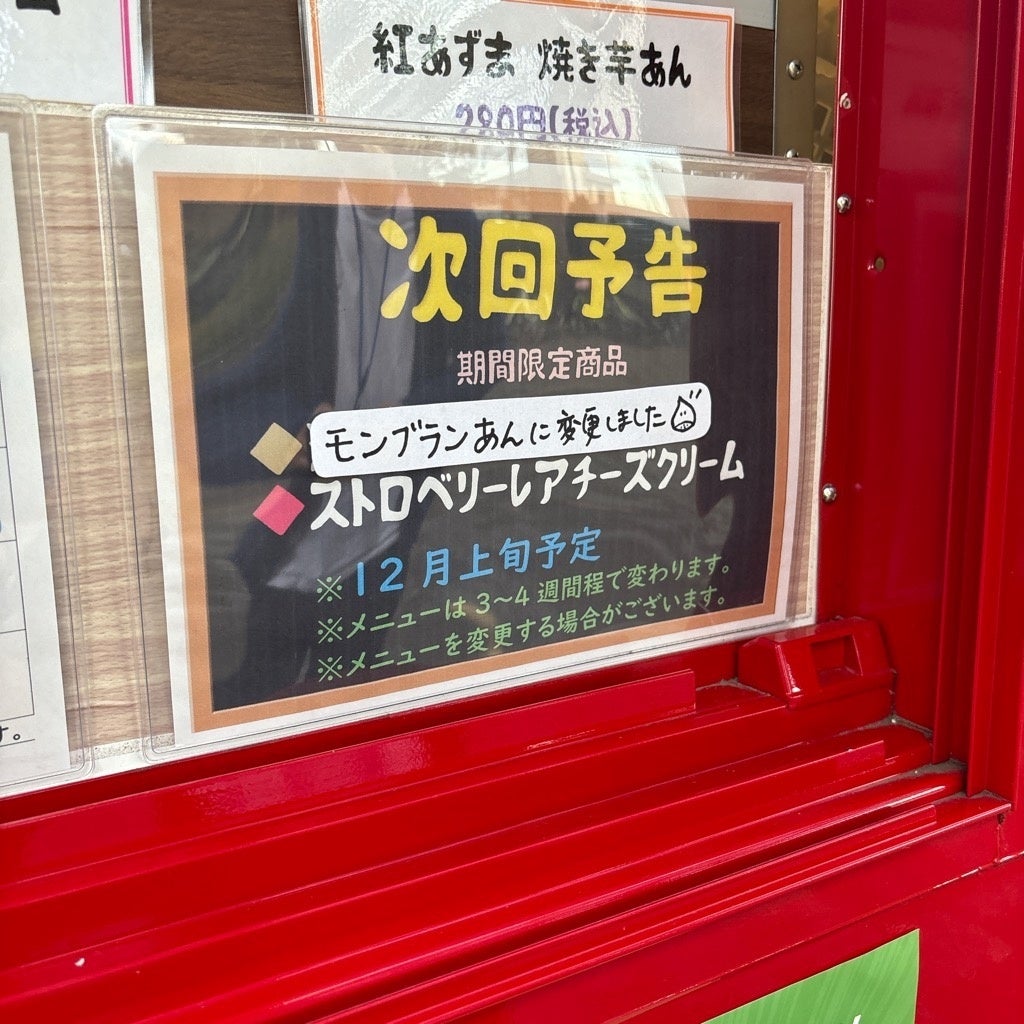 紅あずま 焼き芋あん
280円(税込)
次回予告
期間限定商品
モンブランあんに変更しました
ストロベリーレアチーズクリーム
※12月上旬予定
※メニューは3～4週間程で変わります。
※メニューを変更する場合がございます。
す。